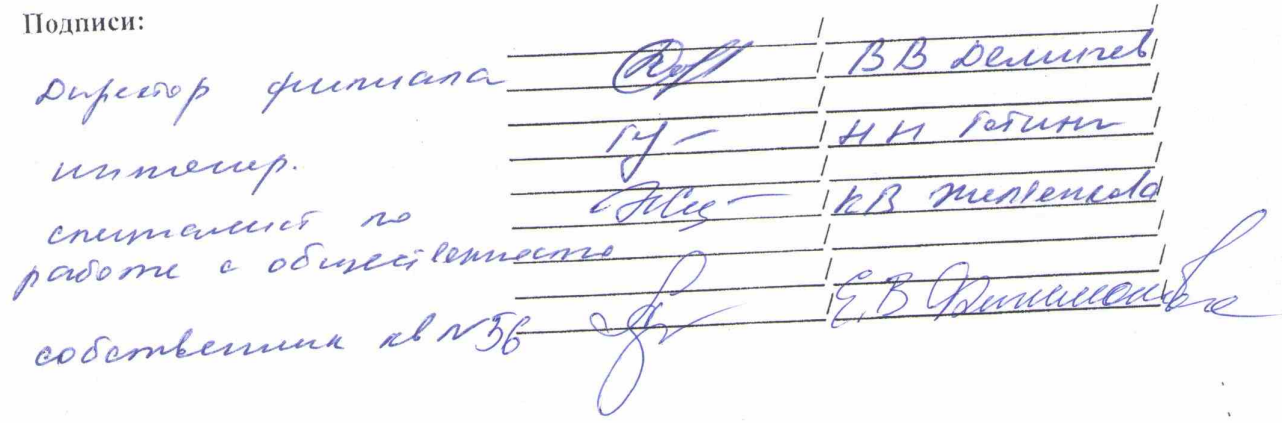 Подписи:
Директор филиала / В В Демичев /
инженер. / Н Н /
специалист по / К В /
работе с общественностью
собственник кв №56 / Е.В Филимонова